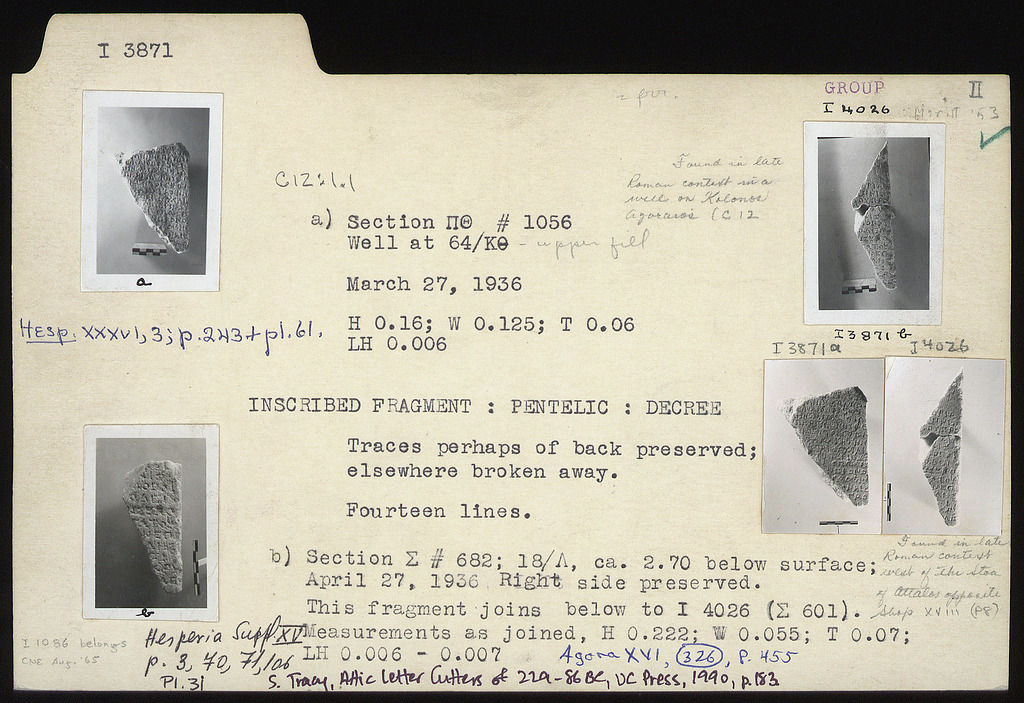 I 3871
GROUP
I 4026
II
'53
Found in late
Roman context in a
well on Kolonos
Agoraios (C 12
C12:1.1
a) Section ΠΘ # 1056
Well at 64/ΚΘ - upper fill
March 27, 1936
H 0.16; W 0.125; T 0.06
LH 0.006
a
Hesp. XXXVI, 3; p. 243 + pl. 61.
I 3871 b
I 3871a
I 4026
INSCRIBED FRAGMENT : PENTELIC : DECREE
Traces perhaps of back preserved;
elsewhere broken away.
Fourteen lines.
b) Section Σ # 682; 18/Λ, ca. 2.70 below surface;
April 27, 1936 Right side preserved.
This fragment joins below to I 4026 (Σ 601).
Measurements as joined, H 0.222; W 0.055; T 0.07;
LH 0.006 - 0.007
Found in late
Roman context
west of the Stoa
of Attalos opposite
Shop XVIII (P8)
b
I 1086 belongs
CNE Aug. '65
Hesperia Suppl XV
p. 3, 70, 71, 106
Pl. 31
Agora XVI, 326, p. 455
S. Tracy, Attic Letter Cutters of 229-86 BC, UC Press, 1990, p. 183